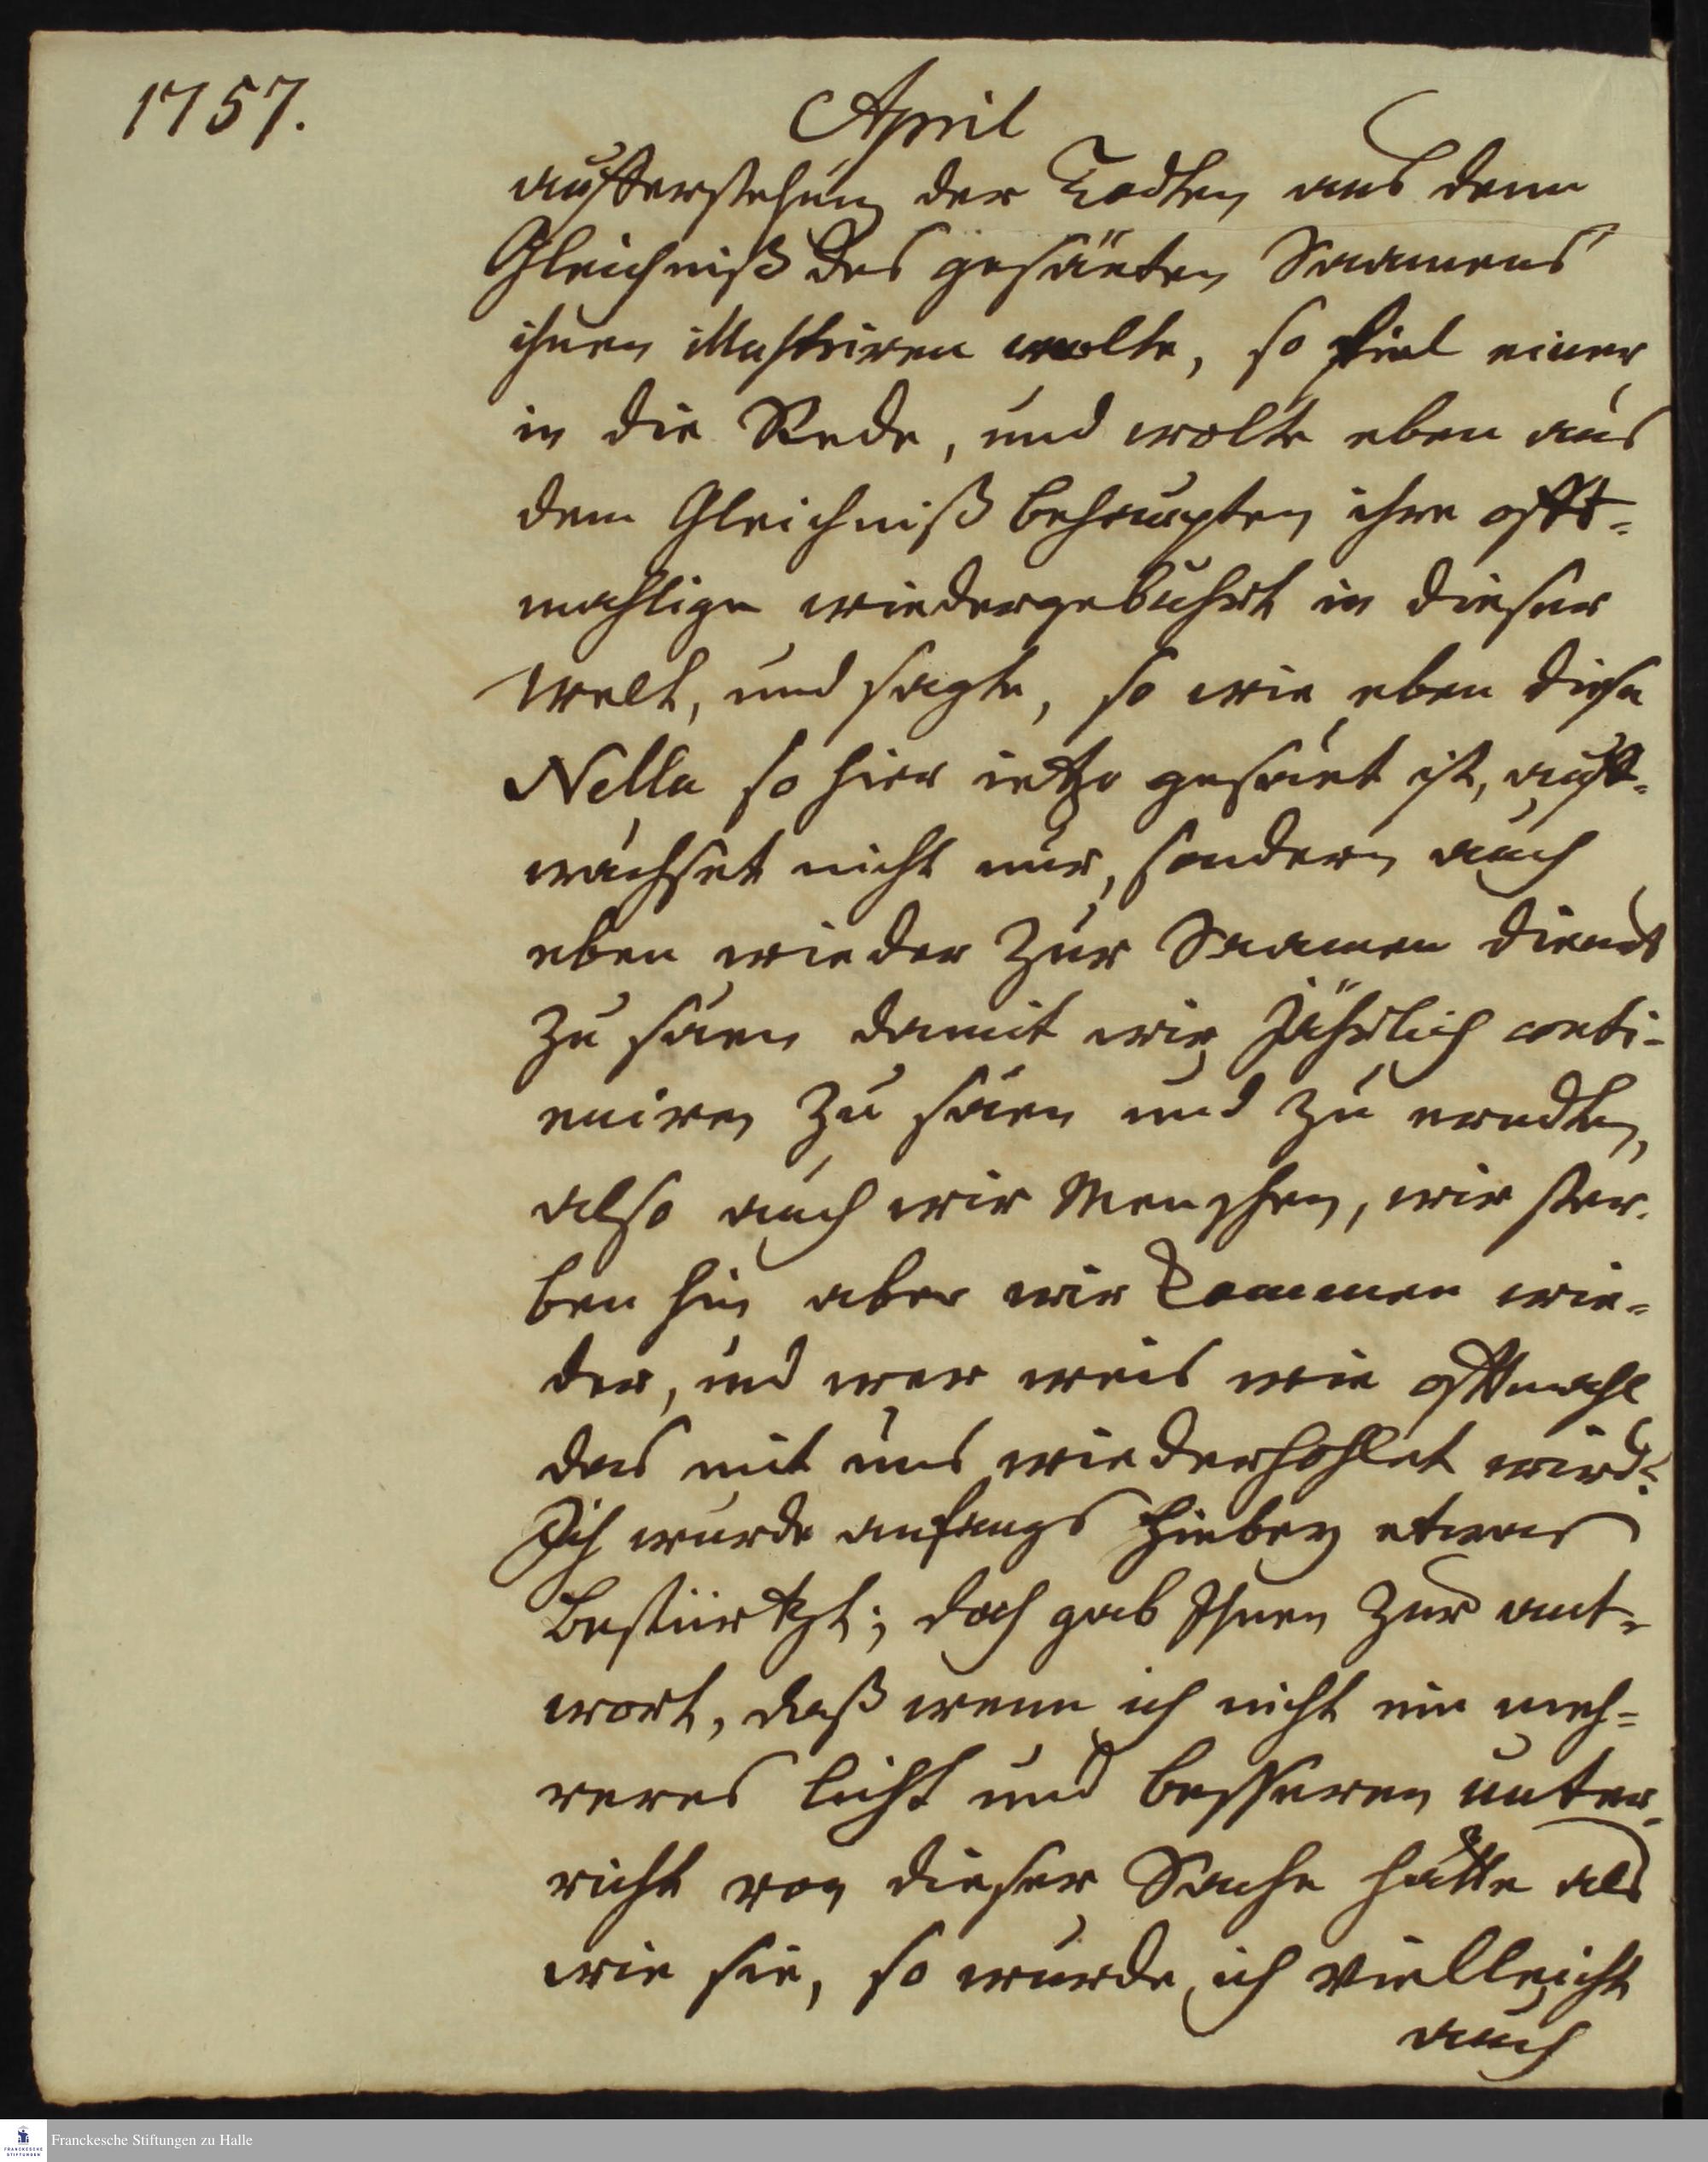 1757.
April
aufferstehung der Todten aus dem
Gleichniß des gesäeten Saamens
ihnen illustriren wolte, so fiel einer
in die Rede, und wolte eben aus
dem Gleichniß behaupten ihre offt-
mahlige wiedergebuhrt in dieser
Welt, und sagte, so wie eben diese
Nella so hier ietzo gesäet ist, auff-
wächset nicht nur, sondern auch
eben wieder zur Saamen dienet
zu säen damit wir Jährlich conti-
nuiren zu säen und zu erndten,
also auch wir Menschen, wir ster-
ben hin aber wir kommen wie-
der, und wer weis wie offtmahl
das mit uns wiederhohlet wird.
Ich wurde anfangs hiebey etwas
Bestürtzt; doch gab Ihnen zur ant-
wort, daß wenn ich nicht ein meh-
reres licht und besseren unter-
richt von dieser Sache hätte als
wie sie, so wurde ich vielleicht
auch
Franckesche Stiftungen zu Halle
FRANCKESCHE
STIFTUNGEN